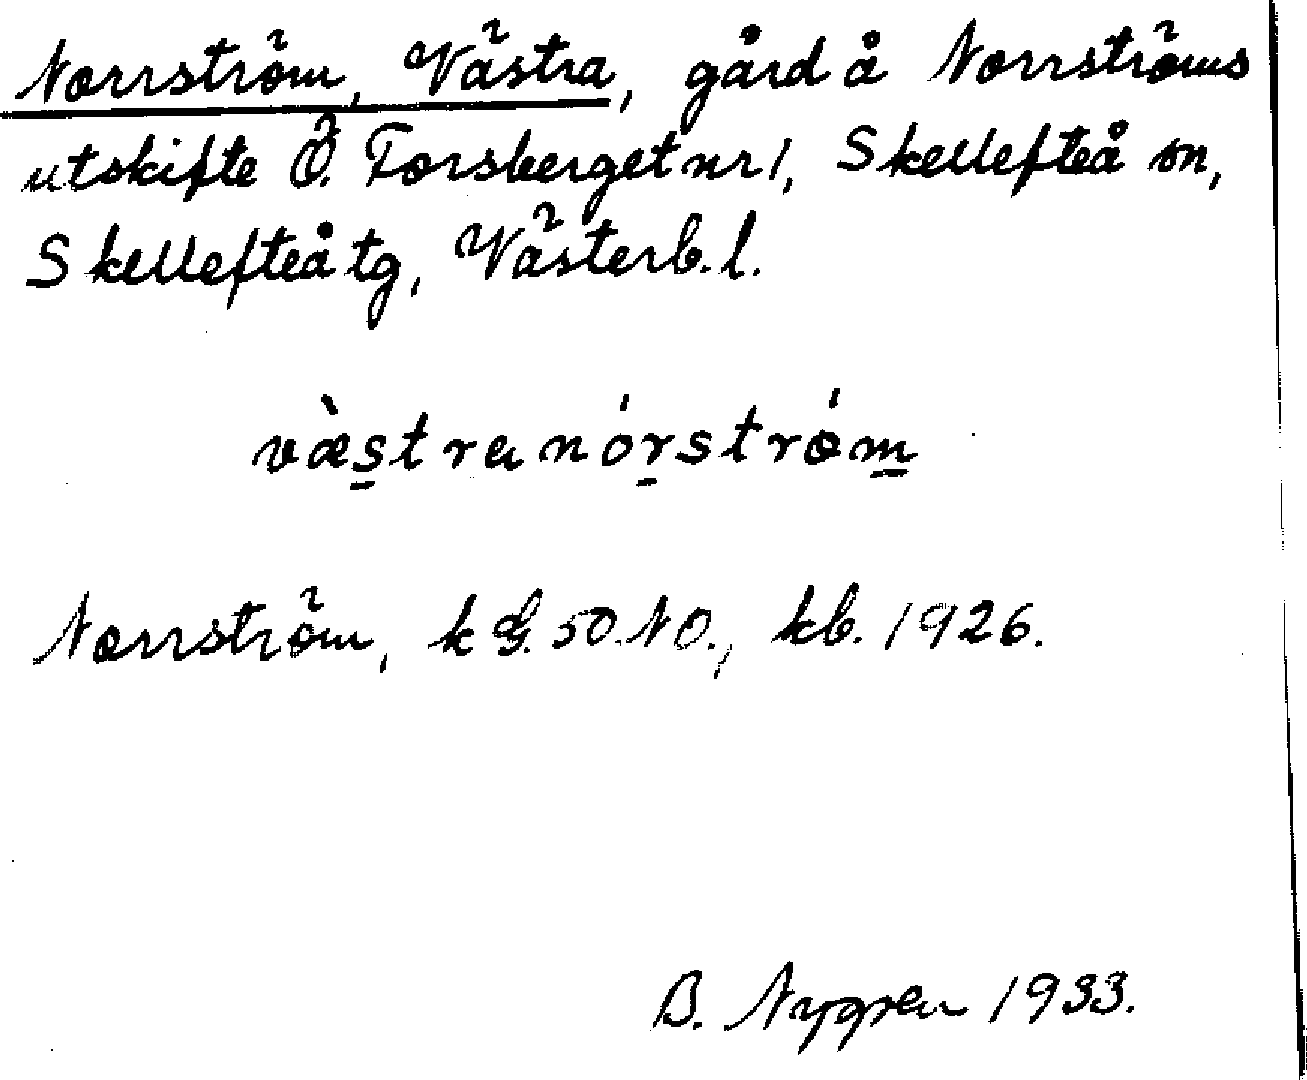 Norrström, Västra, gård å Norrströms
utskifte Ö. Forsberget nr 1, Skellefteå sn,
Skellefteå tg, Västerb. l.
væ̀stra nórström
Norrström, k G. 50. NO., kb. 1926.
B. Nygren 1933.